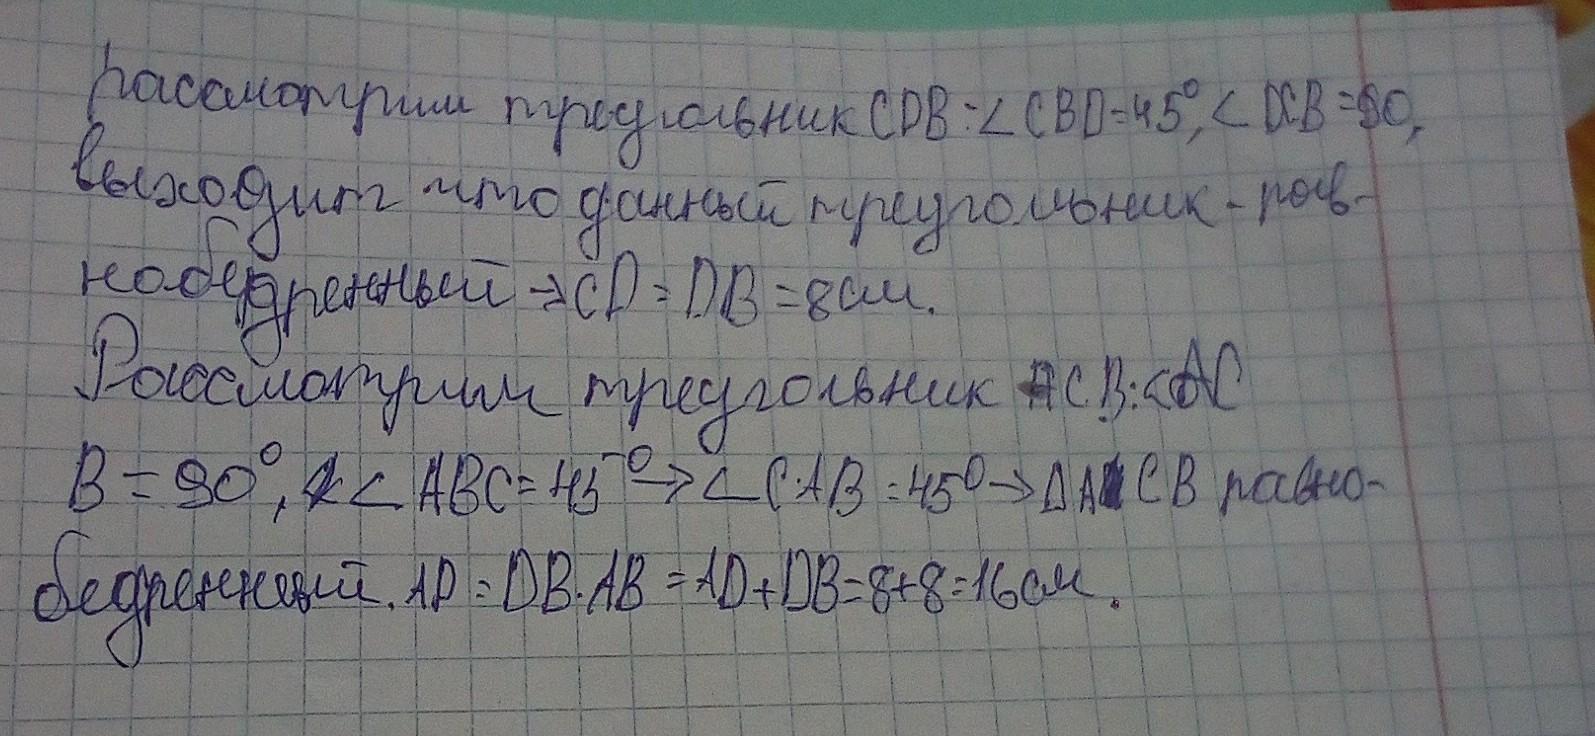 Рассмотрим треугольник CDB: < CBD=45°, < DCB=90,
выходит что данный треугольник - рав-
нобедренный → CD = DB = 8см.
Рассмотрим треугольник ACB: <AC
B = 90°, < ABC = 45° → < CAB = 45° → ΔACB равно-
бедренный. AD = DB. AB = AD + DB = 8+8=16см.